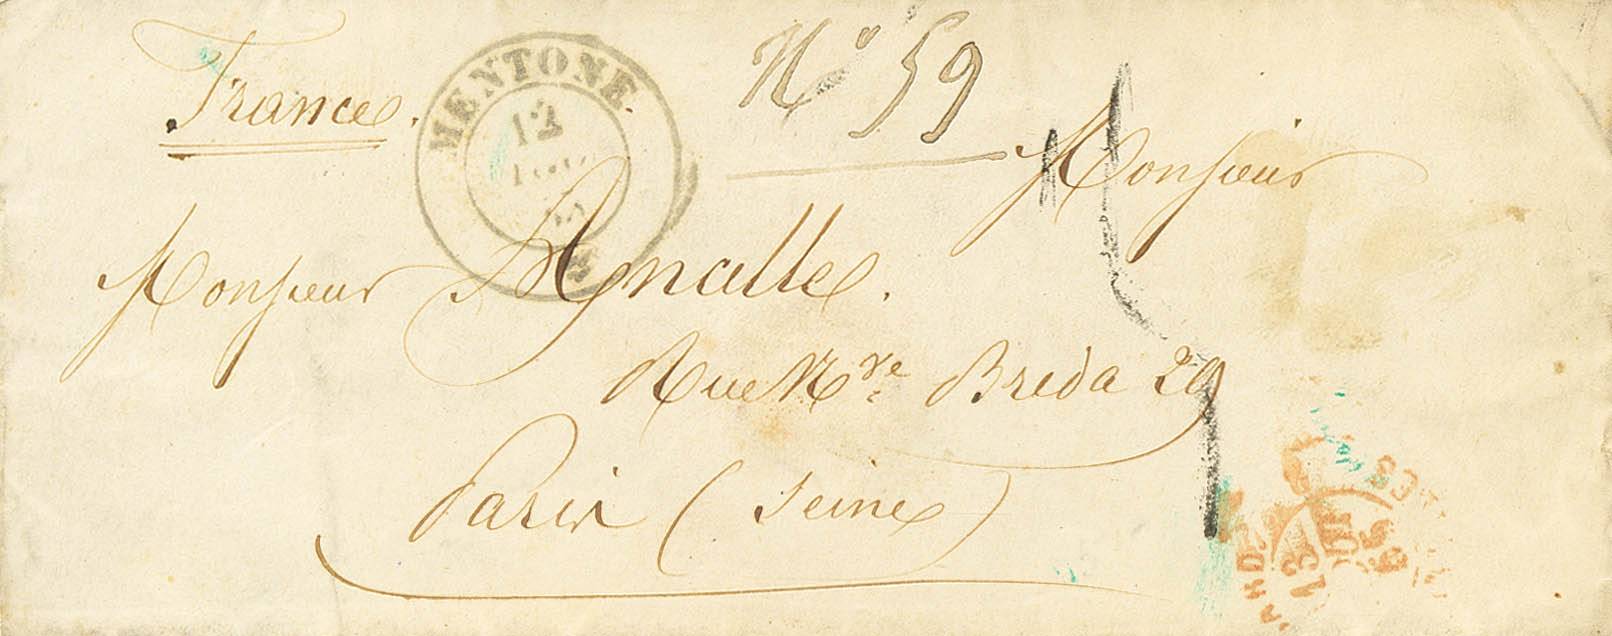 France.
MENTONE
12
N° 59
Monsieur
Monsieur Agnalle.
Rue N.re Breda 29
Paris (Seine)
13